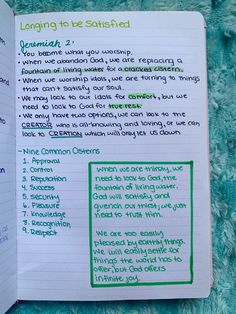 Longing to be Satisfied
Jeremiah 2:
• You become what you worship.
• When we abandon God, we are replacing a
fountain of living water for a cracked cistern.
• When we worship idols, we are turning to things
that can't satisfy our soul.
• We may look to our idols for comfort, but we
need to look to God for true rest.
• We only have two options, we can look to the
CREATOR who is all-knowing and loving, or we can
look to CREATION which will only let us down
~Nine Common Cisterns
1. Approval
2. Control
3. Reputation
4. Success
5. Security
6. Pleasure
7. Knowledge
8. Recognition
9. Respect
When we are thirsty, we
need to look to God, the
fountain of living water.
God will satisfy and
quench our thirst, we just
need to trust Him.
We are too easily
pleased by earthly things.
We will easily settle for
things the world has to
offer, but God offers
infinite joy.